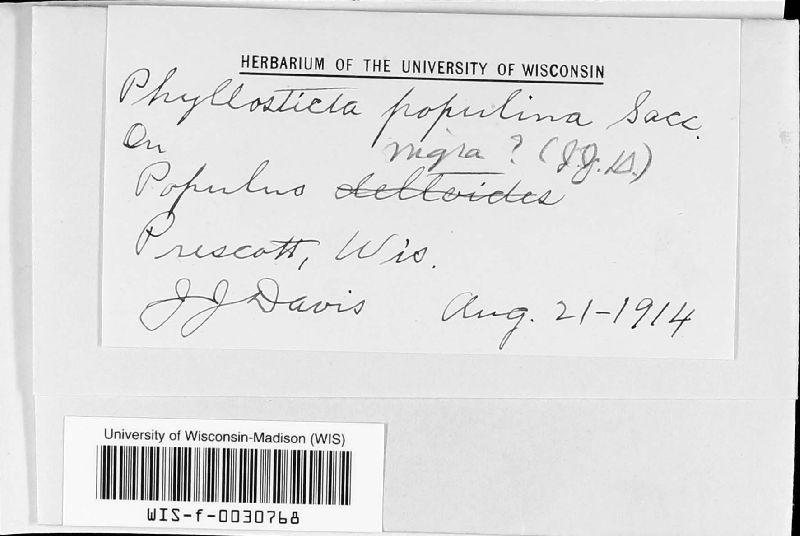 HERBARIUM OF THE UNIVERSITY OF WISCONSIN
Phyllosticta populina Sacc.
On
nigra? (J.J.D.)
Populus deltoides
Prescott, Wis.
J J Davis Aug. 21-1914
University of Wisconsin-Madison (WIS)
WIS-f-0030768